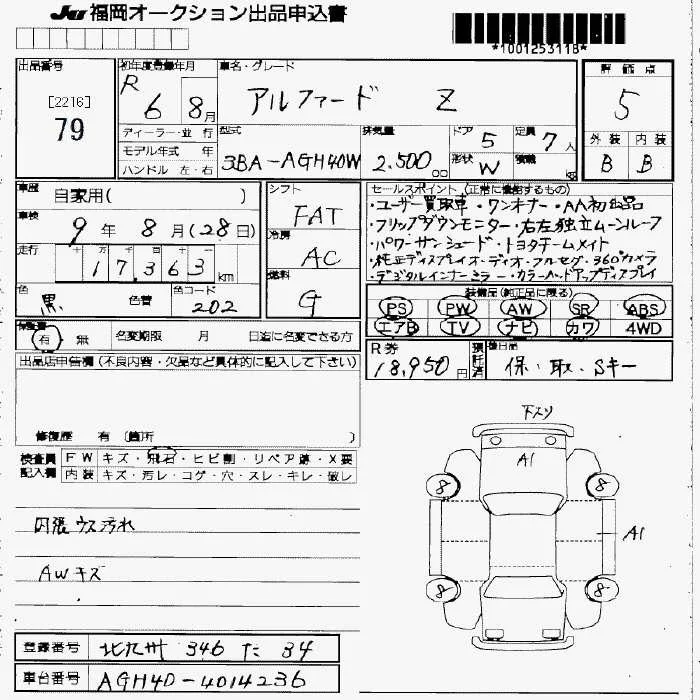 JU 福岡オークション出品申込書
*1001253118*
出品番号
[2216]
79
初年度登録年月
R 6 8月
車名・グレード
アルファード Z
評価点
5
外装 内装
B B
ディーラー・並行
モデル年式 年
ハンドル 左・右
型式
3BA-AGH40W
排気量
2.500 cc
ドア 5
形状 W
定員 7人
積載 kg
車歴 自家用( )
車検 9年 8月(28日)
走行 十 万 千 百 十 一
17,363 km
色 黒 色替
色コード 202
シフト
FAT
冷房
AC
燃料
G
セールスポイント(正常に機能するもの)
・ユーザー買取車・ワンオーナー・AA初出品
・フリップダウンモニター・右左独立ムーンルーフ
・パワーサンシェード・トヨタチームメイト
・純正ディスプレイオーディオ・フルセグ・360°カメラ
・デジタルインナーミラー・カラーヘッドアップディスプレイ
装備品(純正品に限る)
PS PW AW SR ABS
エアB TV ナビ カワ 4WD
保証書
有 無 名変期限 月 日迄に名変できる方
R券
18,950円
預託済
後日品
保、取、Sキー
出品店申告欄(不良内容・欠品など具体的に記入して下さい)
修復歴 有 (箇所 )
検査員記入欄
FW キズ・飛石・ヒビ割・リペア跡・X要
内装 キズ・汚レ・コゲ・穴・スレ・キレ・破レ
内張ウス汚れ
AWキズ
下スリ
A1
8 8
A1
8 8
登録番号 北九州 346 た 34
車台番号 AGH40-4014236